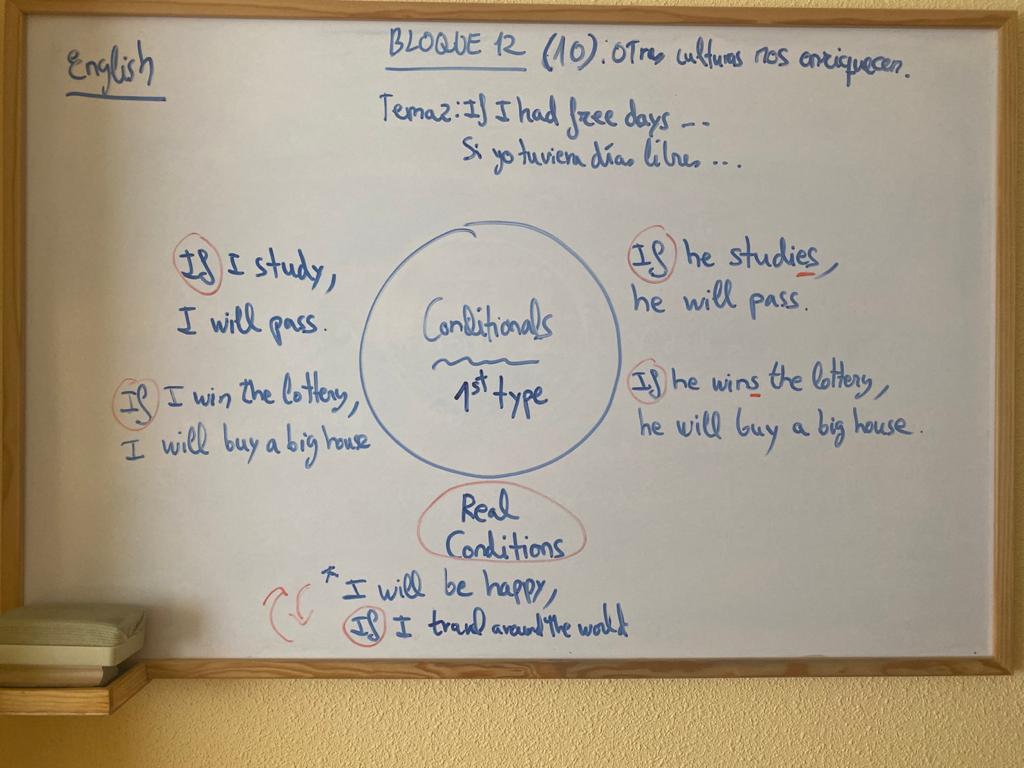 English
BLOQUE 12 (10): Otras culturas nos enriquecen.
Tema 2: If I had free days ...
Si yo tuviera días libres ...
If I study,
I will pass.
If I win the lottery,
I will buy a big house
Conditionals
1st type
If he studies,
he will pass.
If he wins the lottery,
he will buy a big house.
Real
Conditions
* I will be happy,
If I travel around the world